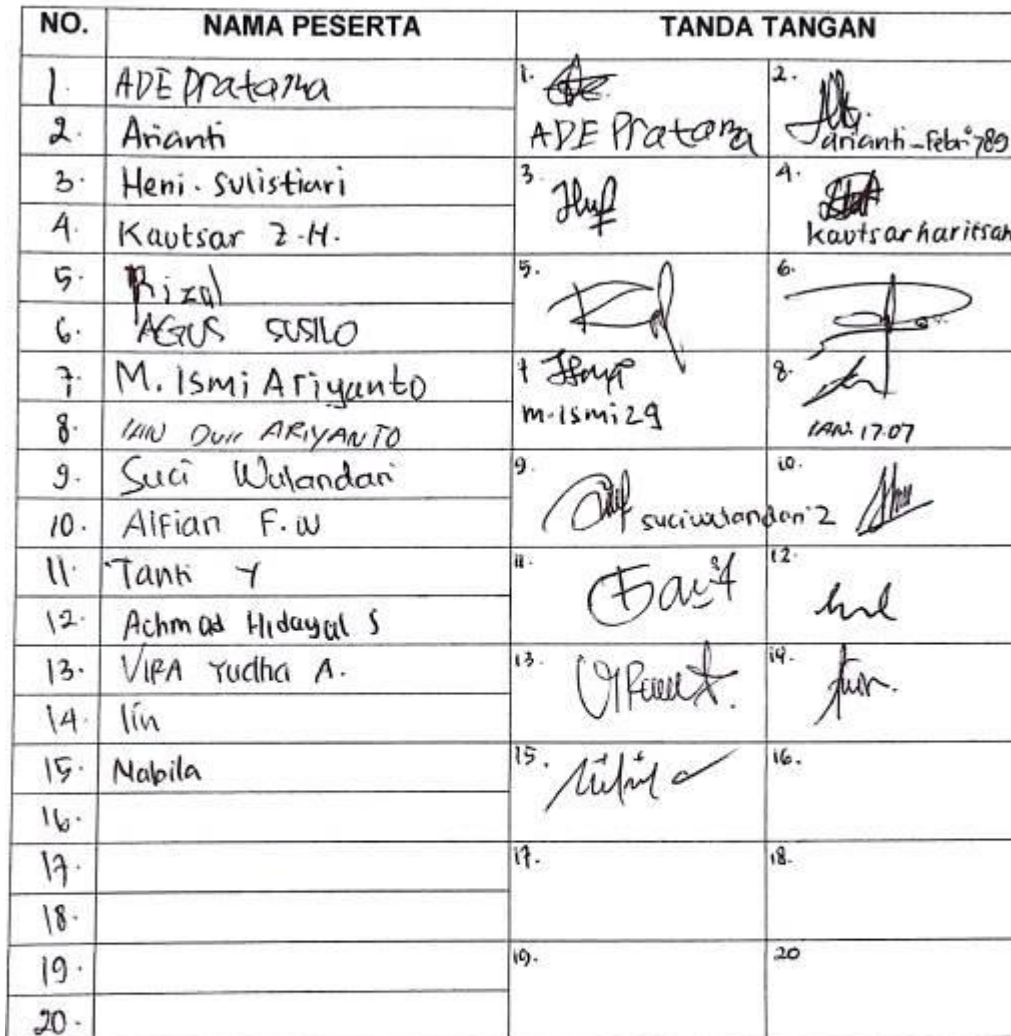 NO. NAMA PESERTA TANDA TANGAN
1. ADE Pratama 1. 2.
ADE Pratama arianti-febri789
2. Arianti
3. Heni. Sulistiari 3. 4.
4. Kautsar Z.H. kautsarharitsah
5. Rizal 5. 6.
6. AGUS SUSILO
7. M. Ismi Ariyanto 7 8.
m.ismi29 IAN.17.07
8. ARIYANTO
9. Suci Wulandari 9. suciwulandari2 10.
10. Alfian F.W
11. Tanti Y 11. 12.
12. Achmad Hidayat S
13. VIRA Yudha A. 13. 14.
14. Iin
15. Nabila 15. 16.
16.
17. 17. 18.
18.
19. 19. 20
20.